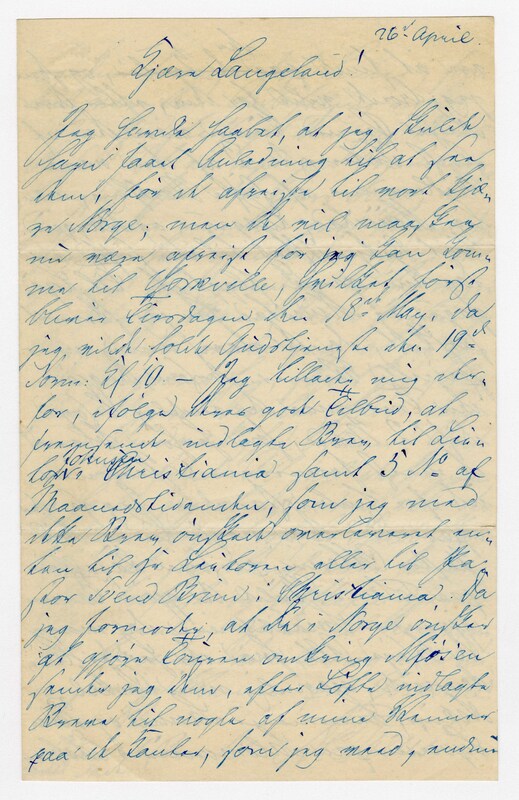 26d April.
Kjære Langeland!
Jeg havde haabet, at jeg skulde
have faaet Anledning til at see
dem, før de afreiste til vort Kjæ-
re Norge; men de vil maaskee
nu være afreist før jeg kan kom-
me til Yorkville, hvilket først
bliver Tirsdagen den 18de May, da
jeg vilde holde Gudstjeneste den 19de
Form: Kl 10 — Jeg tillader mig der-
for, ifølge deres gode Tilbud, at
fremsende indlagte Brev til Lec-
tor Johnson i Christiania samt 5 No af
Maanedstidenden, som jeg med
dette Brev ønskede overleveret en-
ten til Hr Lectoren eller til Pa-
stor Svend Brun i Christiania. Da
jeg formoder, at de i Norge ønsker
at gjøre Touren omkring Mjøsen
sender jeg dem, efter Løfte indlagte
Breve til nogle af mine Venner
paa de Kanter, som jeg